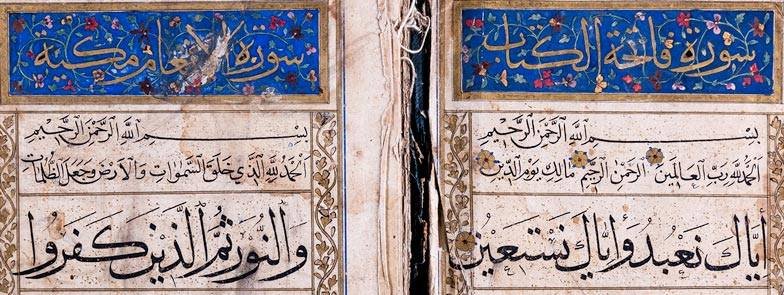 سورة فاتحة الكتاب
بسم الله الرحمن الرحيم
الحمد لله رب العالمين الرحمن الرحيم مالك يوم الدين
إياك نعبد وإياك نستعين
سورة الأنعام مكية
بسم الله الرحمن الرحيم
الحمد لله الذي خلق السموات والأرض وجعل الظلمات
والنور ثم الذين كفروا